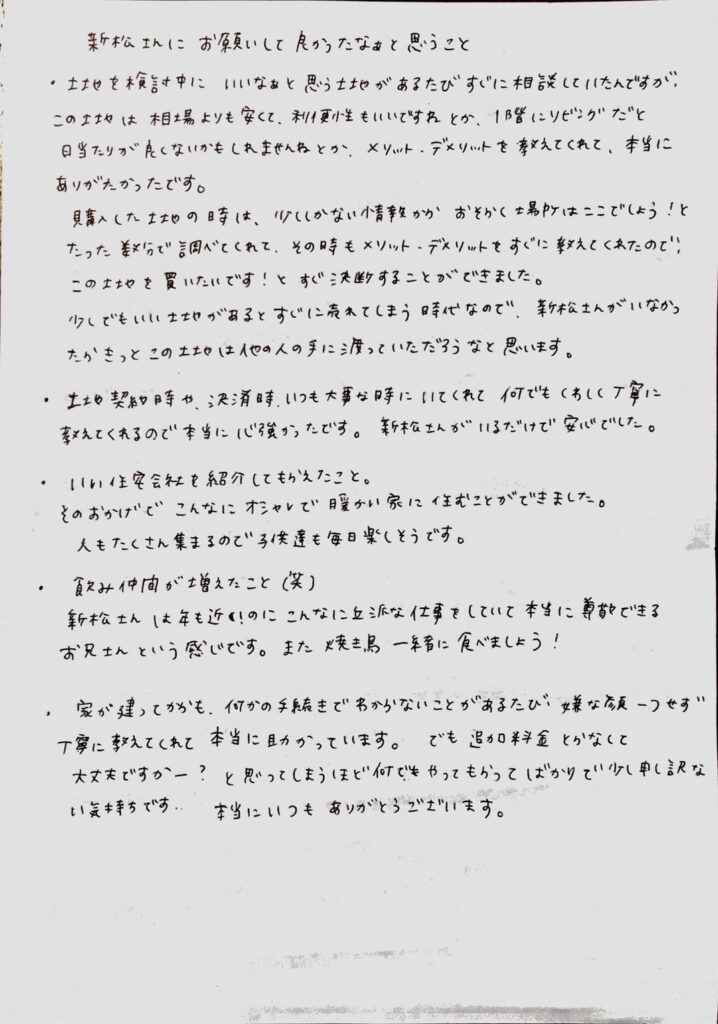 新松さんに お願いして 良かったなぁと思うこと
・土地を検討中に いいなぁと思う土地があるたび すぐに相談していたんですが、
この土地は 相場よりも安くて、利便性もいいですね とか、1階にリビングだと
日当たりが良くないかもしれませんねとか、メリット・デメリットを教えてくれて、本当に
ありがたかったです。
購入した土地の時は、少ししかない情報から おそらく場所はここでしょう!と
たった数分で調べてくれて、その時もメリット・デメリットをすぐに教えてくれたので、
この土地を買いたいです!と すぐ決断することができました。
少しでもいい土地があるとすぐに売れてしまう時代なので、新松さんがいなかっ
たらきっとこの土地は他の人の手に渡っていただろうなと思います。
・土地契約時や、決済時、いつも大事な時にいてくれて 何でもくわしく丁寧に
教えてくれるので本当に心強かったです。新松さんがいるだけで安心でした。
・いい住宅会社を紹介してもらえたこと。
そのおかげで こんなにオシャレで暖かい家に住むことができました。
人もたくさん集まるので子供達も毎日楽しそうです。
・飲み仲間が増えたこと(笑)
新松さんは年も近いのにこんなに立派な仕事をしていて本当に尊敬できる
お兄さんという感じです。また焼き鳥一緒に食べましょう!
・家が建ってからも、何かの手続きでわからないことがあるたび、嫌な顔一つせず
丁寧に教えてくれて 本当に助かっています。でも追加料金とかなくて
大丈夫ですかー?と思ってしまうほど何でもやってもらってばかりで少し申し訳な
い気持ちです.. 本当にいつも ありがとうございます。